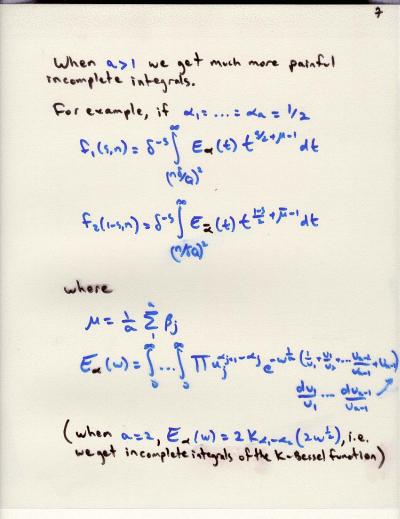 7
When a>1 we get much more painful
incomplete integrals.
For example, if α₁=...=αₐ=1/2
f₁(s,n) = δ^{-s} ∫_{(nδ/Q)²}^{∞} E_α(t) t^{s/2+μ-1} dt
f₂(1-s,n) = δ^{-s} ∫_{(n/δQ)²}^{∞} E_ᾱ(t) t^{(1-s)/2+μ̄-1} dt
where
μ = 1/a Σ_{1}^{a} β_j
E_α(w) = ∫_0^∞ ... ∫_0^∞ Π u_j^{α_{j+1}-α_j} e^{-w^{1/a}(1/u₁+u₁/u₂+...u_{a-2}/u_{a-1}+u_{a-1})}
du₁/u₁ ... du_{a-1}/u_{a-1}
(when a=2, E_α(w) = 2K_{α₁-α₂}(2w^{1/2}), i.e.
we get incomplete integrals of the K-Bessel function)